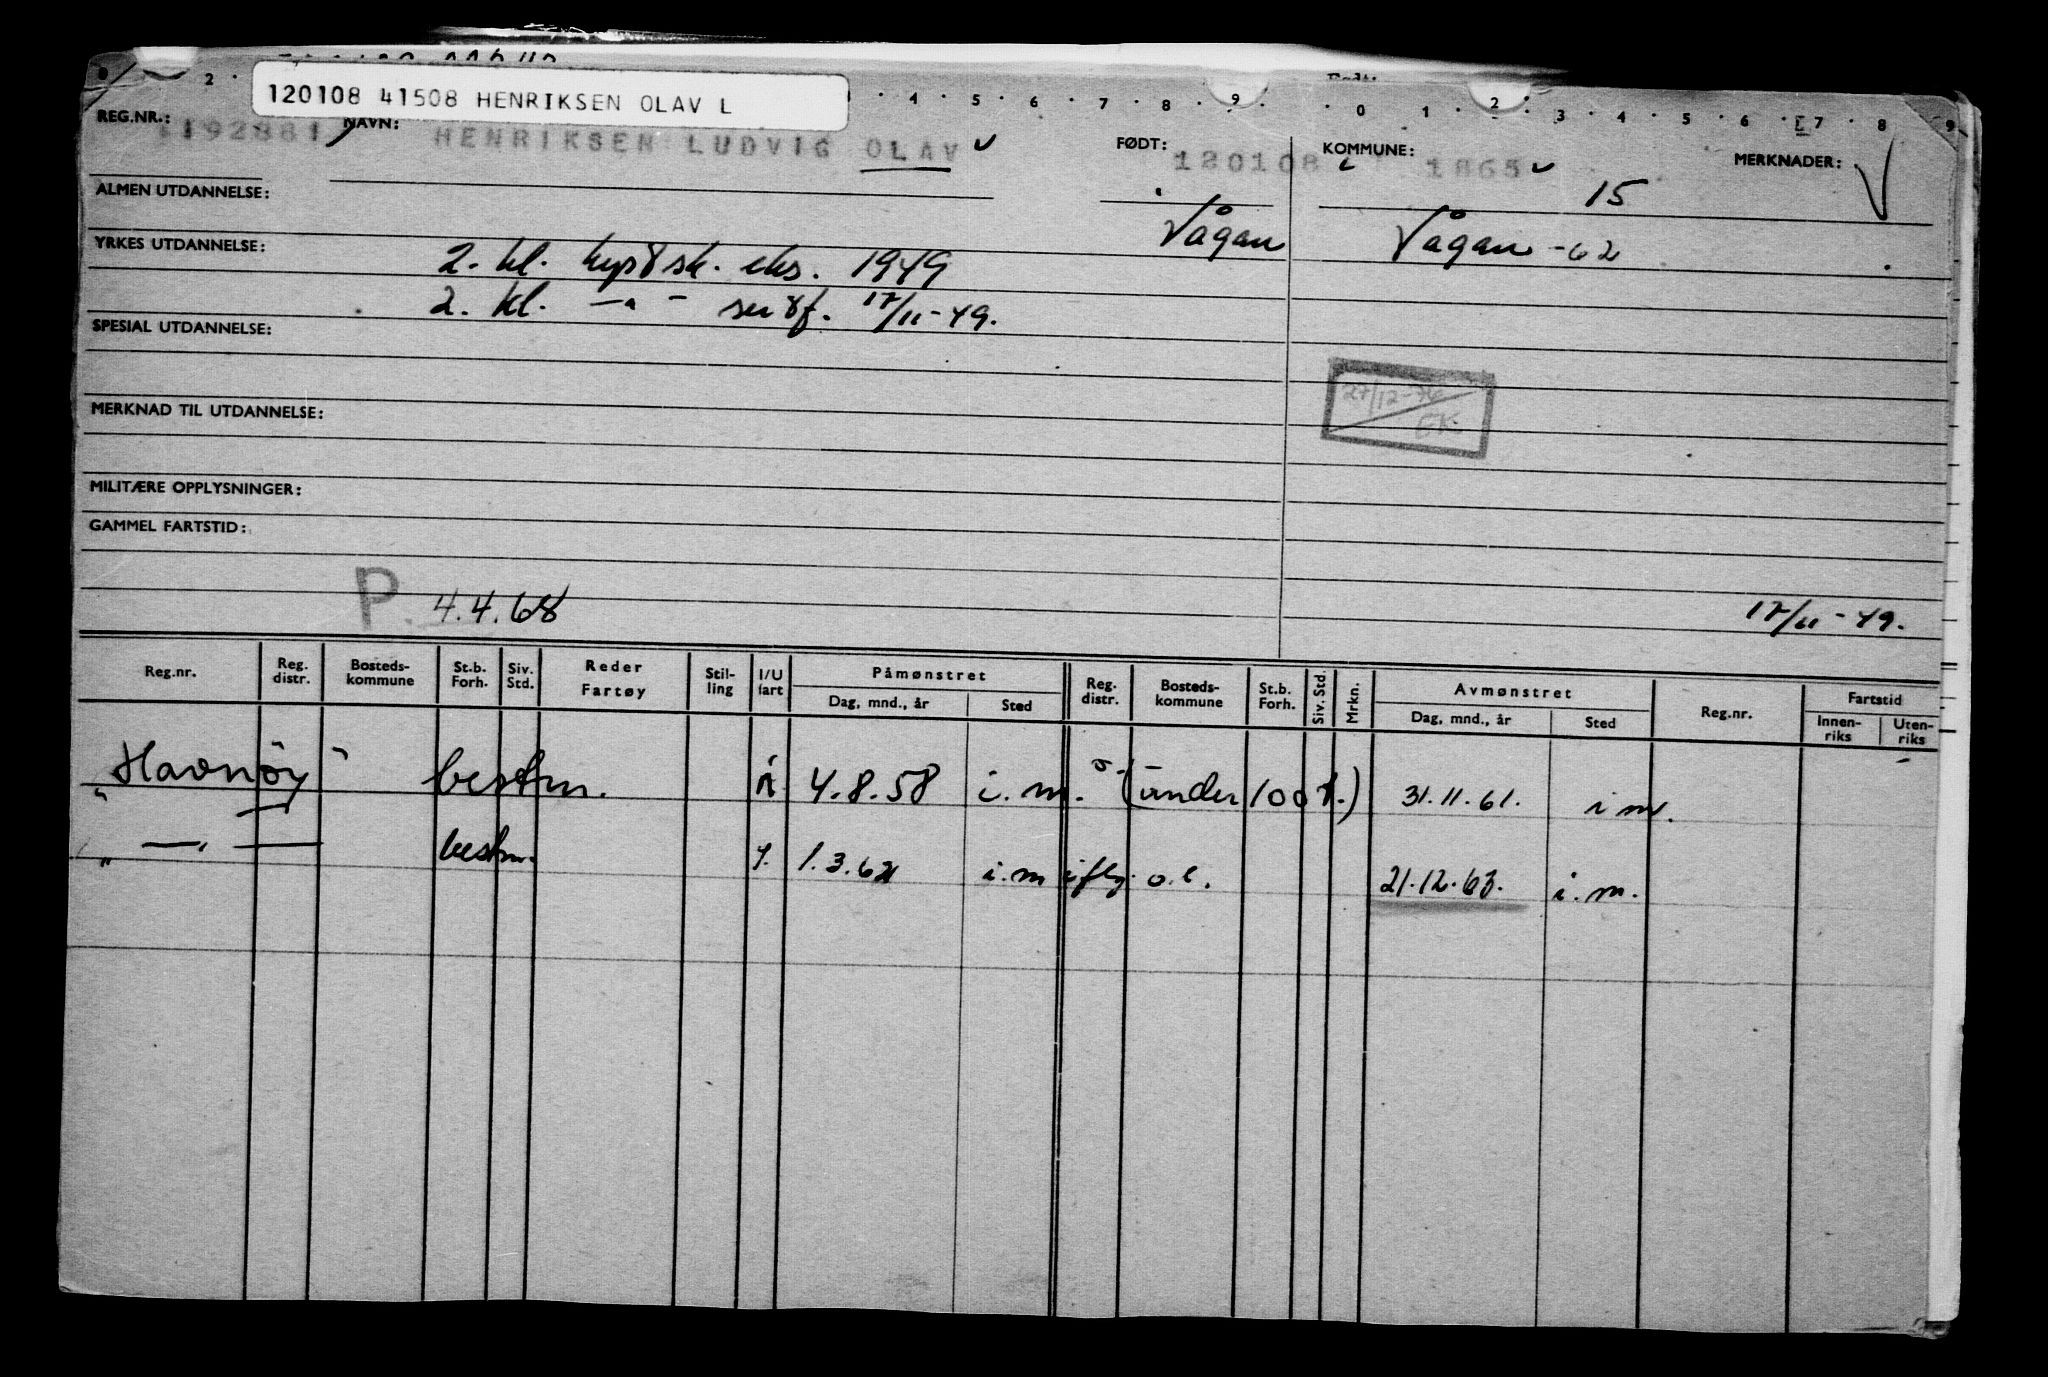 120108 41508 HENRIKSEN OLAV L
2 3 4 5 6 7 8 9 0 1 2 3 4 5 6 7 8 9
REG.NR.: 1192881 NAVN: HENRIKSEN LUDVIG OLAV FØDT: 120108 KOMMUNE: 1865 MERKNADER:
ALMEN UTDANNELSE: 15
Vågan Vågan -62
YRKES UTDANNELSE: 2. kl. kystsk. eks. 1949
2. kl. —"— sertf. 17/11-49.
SPESIAL UTDANNELSE:
27/12-76
EK
MERKNAD TIL UTDANNELSE:
MILITÆRE OPPLYSNINGER:
GAMMEL FARTSTID:
P. 4.4.68 17/11-49.
Reg.nr. Reg. distr. Bosteds-kommune St.b. Forh. Siv. Std. Reder Fartøy Stil-ling I/U fart Påmønstret Dag, mnd., år Sted Reg. distr. Bosteds-kommune St.b. Forh. Siv. Std. Mrkn. Avmønstret Dag, mnd., år Sted Reg.nr. Fartstid Innen-riks Uten-riks
"Havnøy" bestm. 4.8.58 i.m. (under 100 t.) 31.11.61. i m.
" —"— bestm. 1.3.62 i.m iflg. o.l. 21.12.63. i.m.